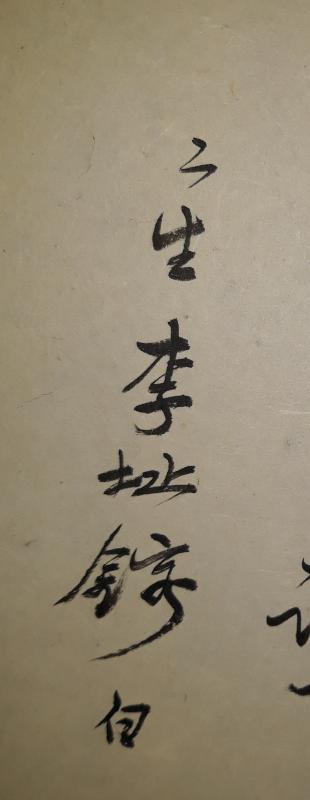 二生李址鎔白